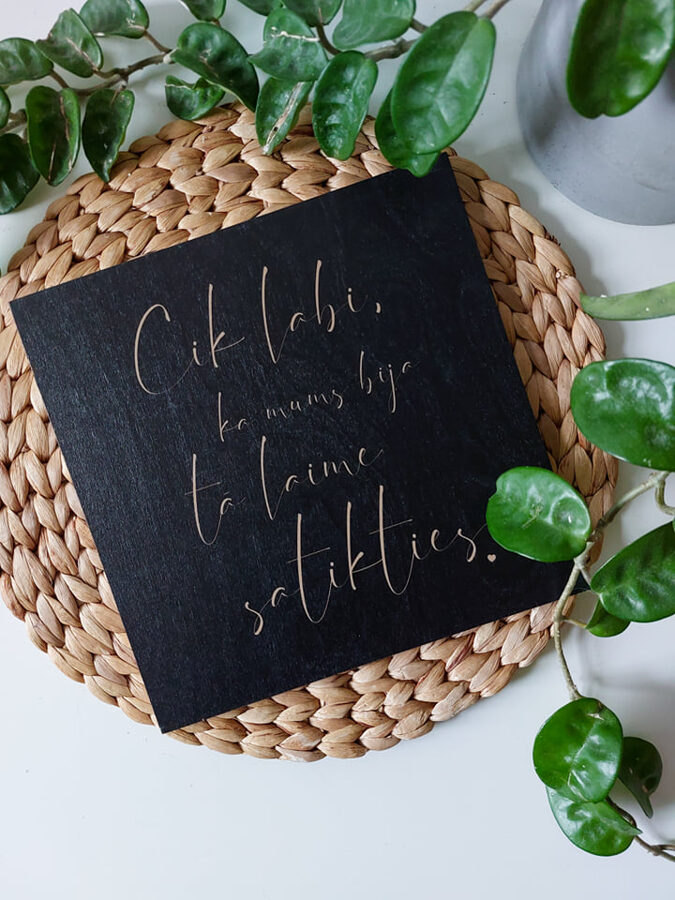 Cik labi,
ka mums bija
ta laime
satikties.